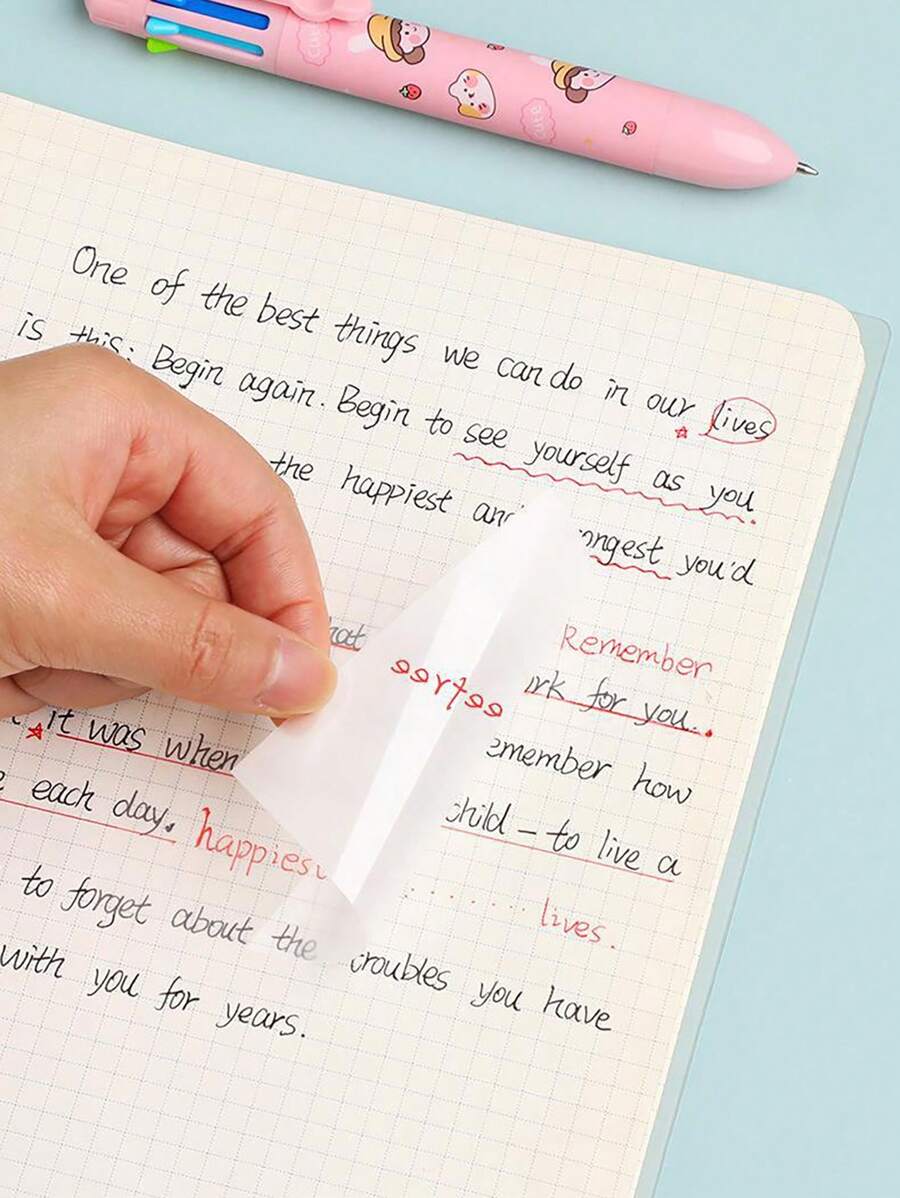 cute
cute
One of the best things we can do in our lives
is this: Begin again. Begin to see yourself as you
the happiest and ongest you'd
Remember
hat rk for you.
it was when emember how
each day. child – to live a
happies lives.
to forget about the troubles you have
with you for years.